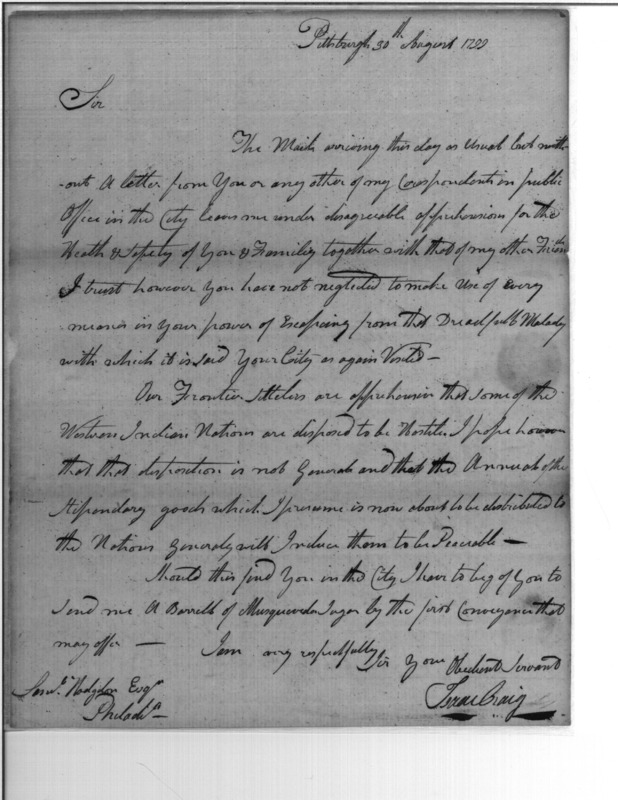 Pittsburgh 30th August 1799
Sir
The Mail arriving this day as Usual but with-
-out A letter from You or any other of my Corespondents in public
Office in the City leaves me under disagreable apprehensions for the
Health & Safety of You & Family together with that of my other Friends
I trust however you have not neglected to make Use of Every
means in your power of Escaping from that Dreadfull Malady
with which it is said Your City is again Visited —
Our Frontier Settlers are apprehensive that some of the
Western Indian Nations are disposed to be Hostile, I hope however
that that disposition is not General and that the Annual of the
Stipendary goods which I presume is now about to be distributed to
the Nations Generaly will Induce them to be Peacable —
Should this find You in the City I have to beg of You to
send me A Barrell of Muscovado Sugar by the first Conveyance that
may offer —
I am very respectfully
Sir Your Obedient Servant
Isaac Craig
Saml. Hodgdon Esqr
Philada